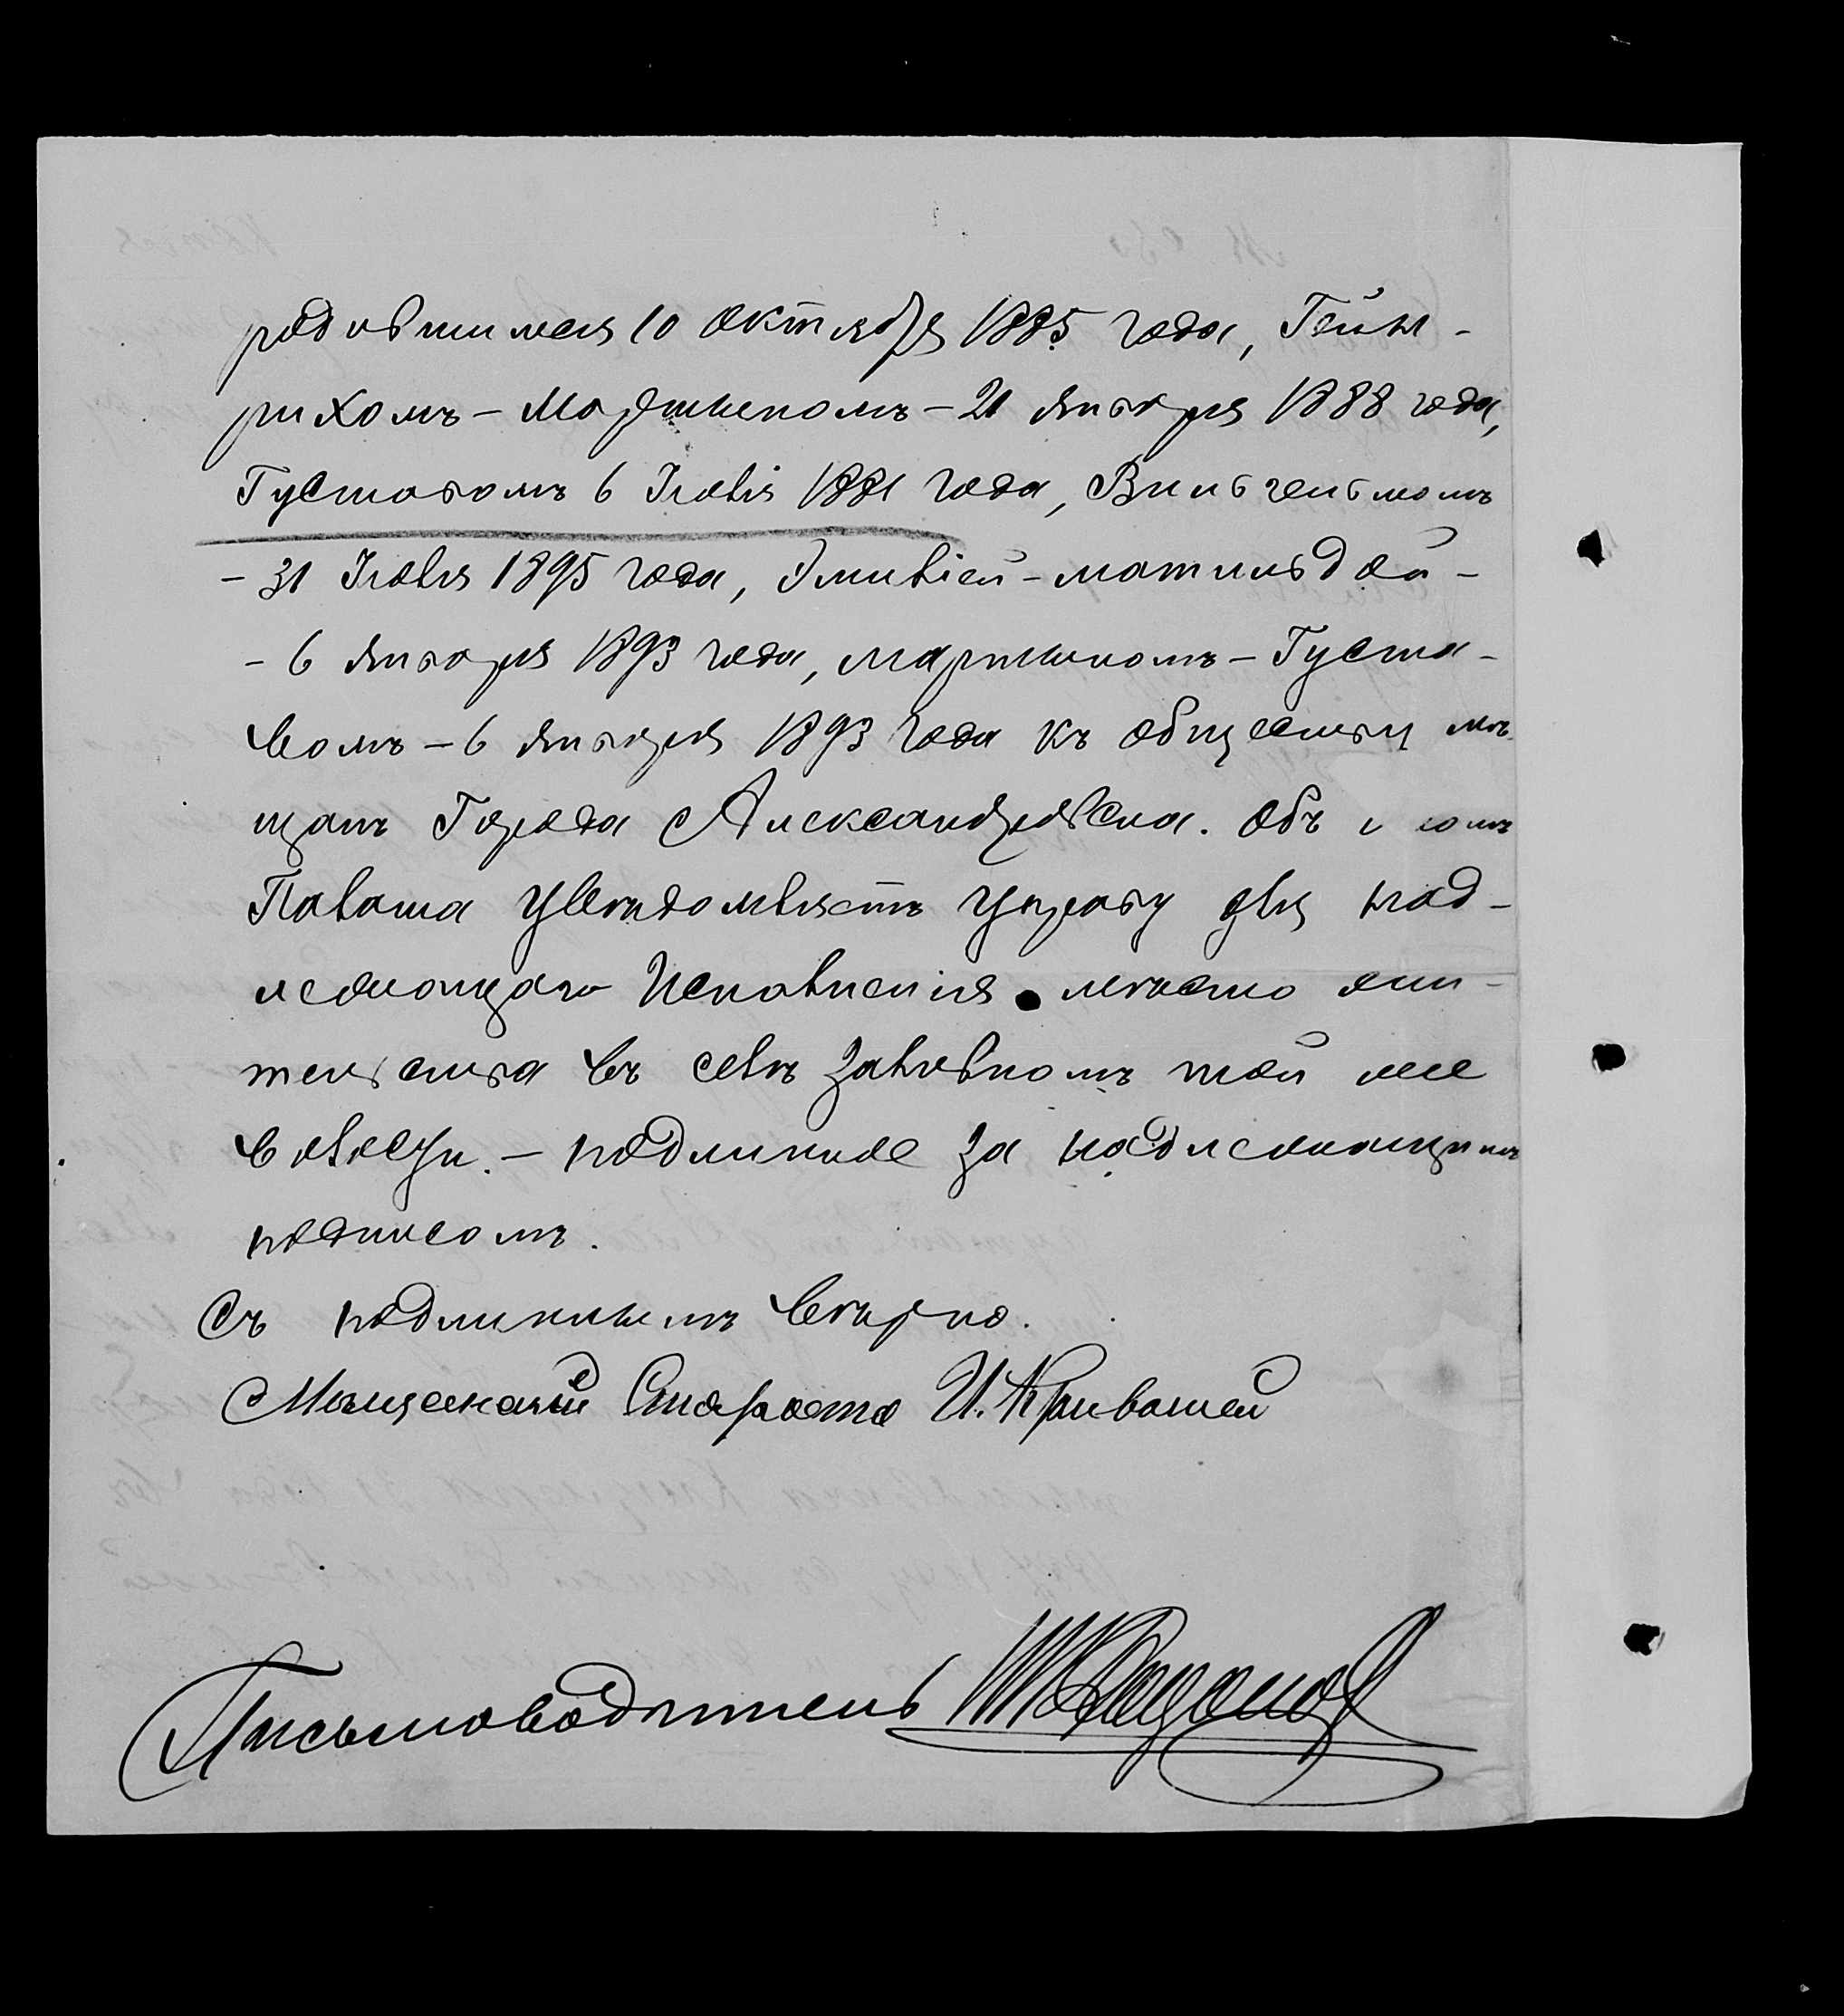 родившимся 10 октября 1885 года, Гейн-
рихомъ - Мартыномъ - 21 Января 1888 года,
Густавомъ 6 Іюля 1881 года, Вильгельмомъ
- 31 Іюля 1895 года, Эмиліей - матильдой -
- 6 Января 1893 года, мартыномъ - Густа-
вомъ - 6 Января 1893 года къ обществу мѣ
щанъ Города Александровска. Объ
Палата увѣдомляетъ Управу для над-
лежащаго Исполненія. мѣсто жи-
тельства въ селѣ той же
волости. - подлинное за надлежащимъ
подписомъ.
Съ подлиннымъ вѣрно.
Мѣщанскій Староста И. Кривошей
Письмоводитель